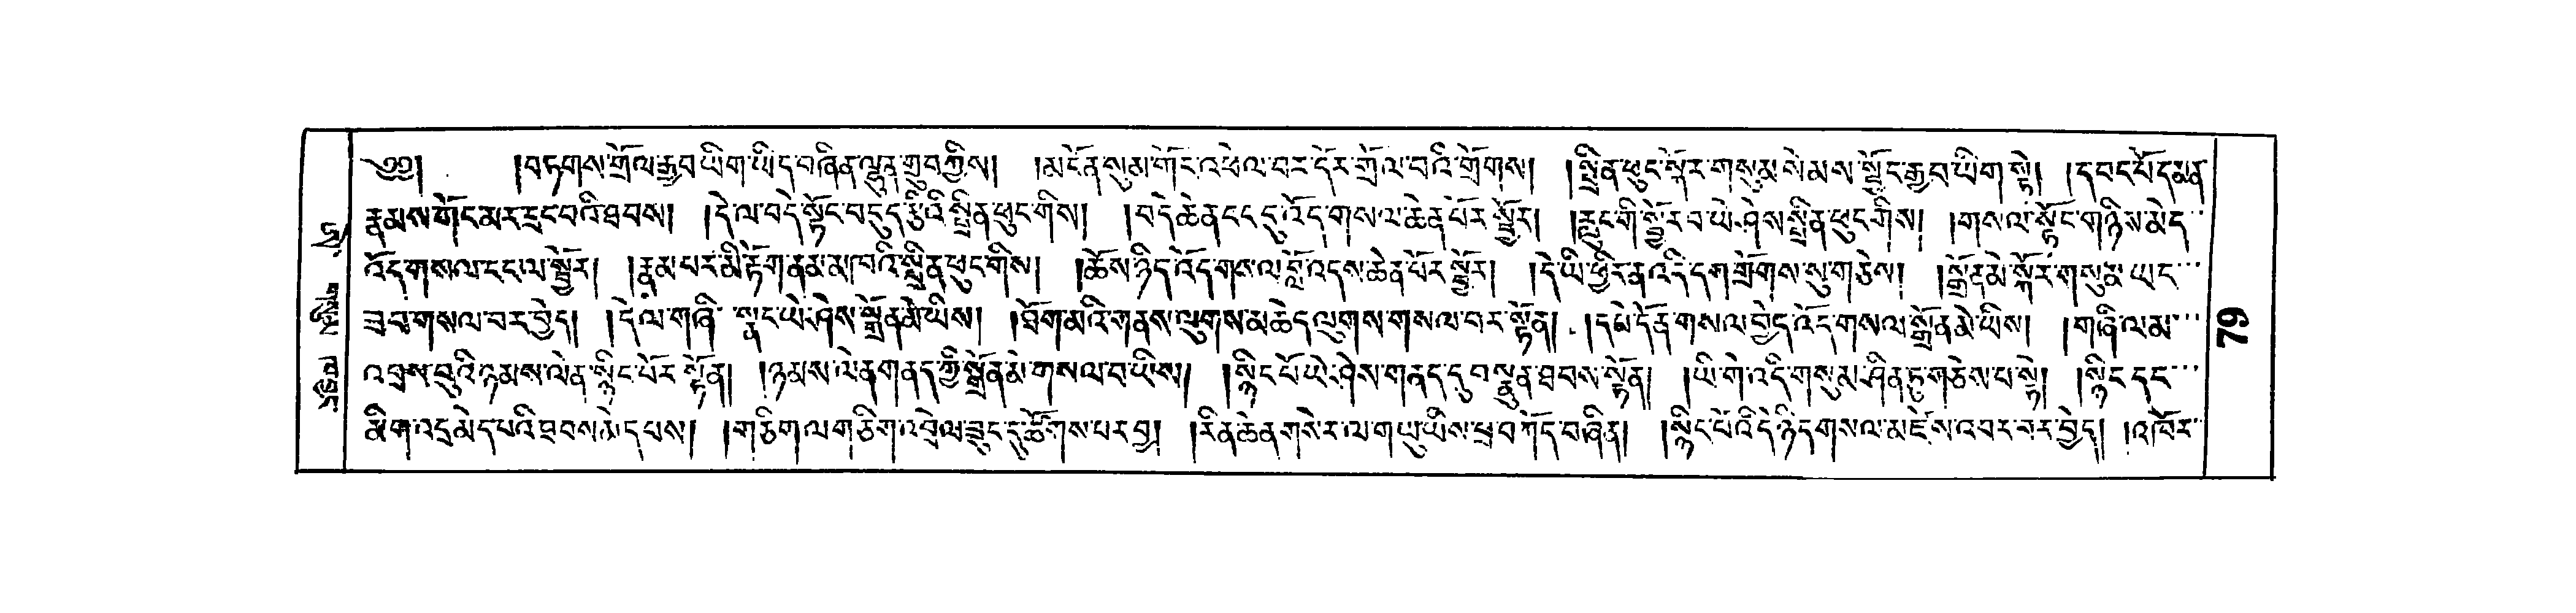 ༄༅། །བཏགས་གྲོལ་རྒྱབ་ཡིག་ཡིད་བཞིན་ལྷུན་གྲུབ་ཀྱིས། །མངོན་སུམ་གོང་འཕེལ་བར་དོར་གྲོལ་བའི་གྲོགས། །སྤྲིན་ཕུང་སྐོར་གསུམ་སེམས་སྦྱོང་རྒྱབ་ཡིག་སྟེ། །དབང་པོ་དམན་
རྣམས་གོང་མར་དྲང་བའི་ཐབས། །དེ་ལ་བདེ་སྟོང་བདུད་རྩིའི་སྤྲིན་ཕུང་གིས། །བདེ་ཆེན་ངང་དུ་འོད་གསལ་ཆེན་པོར་སྦྱོར། །རླུང་གི་སྦྱོར་བ་ཡེ་ཤེས་སྤྲིན་ཕུང་གིས། །གསལ་སྟོང་གཉིས་མེད་
འོད་གསལ་ངང་ལ་སྦྱོར། །རྣམ་པར་མི་རྟོག་ནམ་མཁའི་སྤྲིན་ཕུང་གིས། །ཆོས་ཉིད་འོད་གསལ་བློ་འདས་ཆེན་པོར་སྦྱོར། །དེ་ཡི་ཕྱིར་ན་འདི་དག་གྲོགས་སུ་གཅེས། །སྒྲོན་མེ་སྐོར་གསུམ་ཡང་
ཟབ་གསལ་བར་བྱེད། །དེ་ལ་གཞི་སྣང་ཡེ་ཤེས་སྒྲོན་མེ་ཡིས། །ཐོག་མའི་གནས་ལུགས་མཆེད་ལུགས་གསལ་བར་སྟོན། །དཔེ་དོན་གསལ་བྱེད་འོད་གསལ་སྒྲོན་མེ་ཡིས། །གཞི་ལམ་
འབྲས་བུའི་ཉམས་ལེན་སྙིང་པོར་སྟོན། །ཉམས་ལེན་གནད་ཀྱི་སྒྲོན་མེ་གསལ་བ་ཡིས། །སྙིང་པོ་ཡེ་ཤེས་གནད་དུ་བསྣུན་ཐབས་སྟོན། །ཡི་གེ་འདི་གསུམ་ཤིན་ཏུ་གཅེས་པ་སྟེ། །སྙིང་དང་
མིག་འདྲ་མེད་པའི་ཐབས་མེད་པས། །གཅིག་ལ་གཅིག་འབྲེལ་ཟུང་དུ་ཚོགས་པར་བྱ། །རིན་ཆེན་གསེར་ལ་གཡུ་ཡིས་ཕྲ་བཀོད་བཞིན། །སྙིང་པོའི་དེ་ཉིད་གསལ་མཛེས་འབར་བར་བྱེད། །འཁོར་